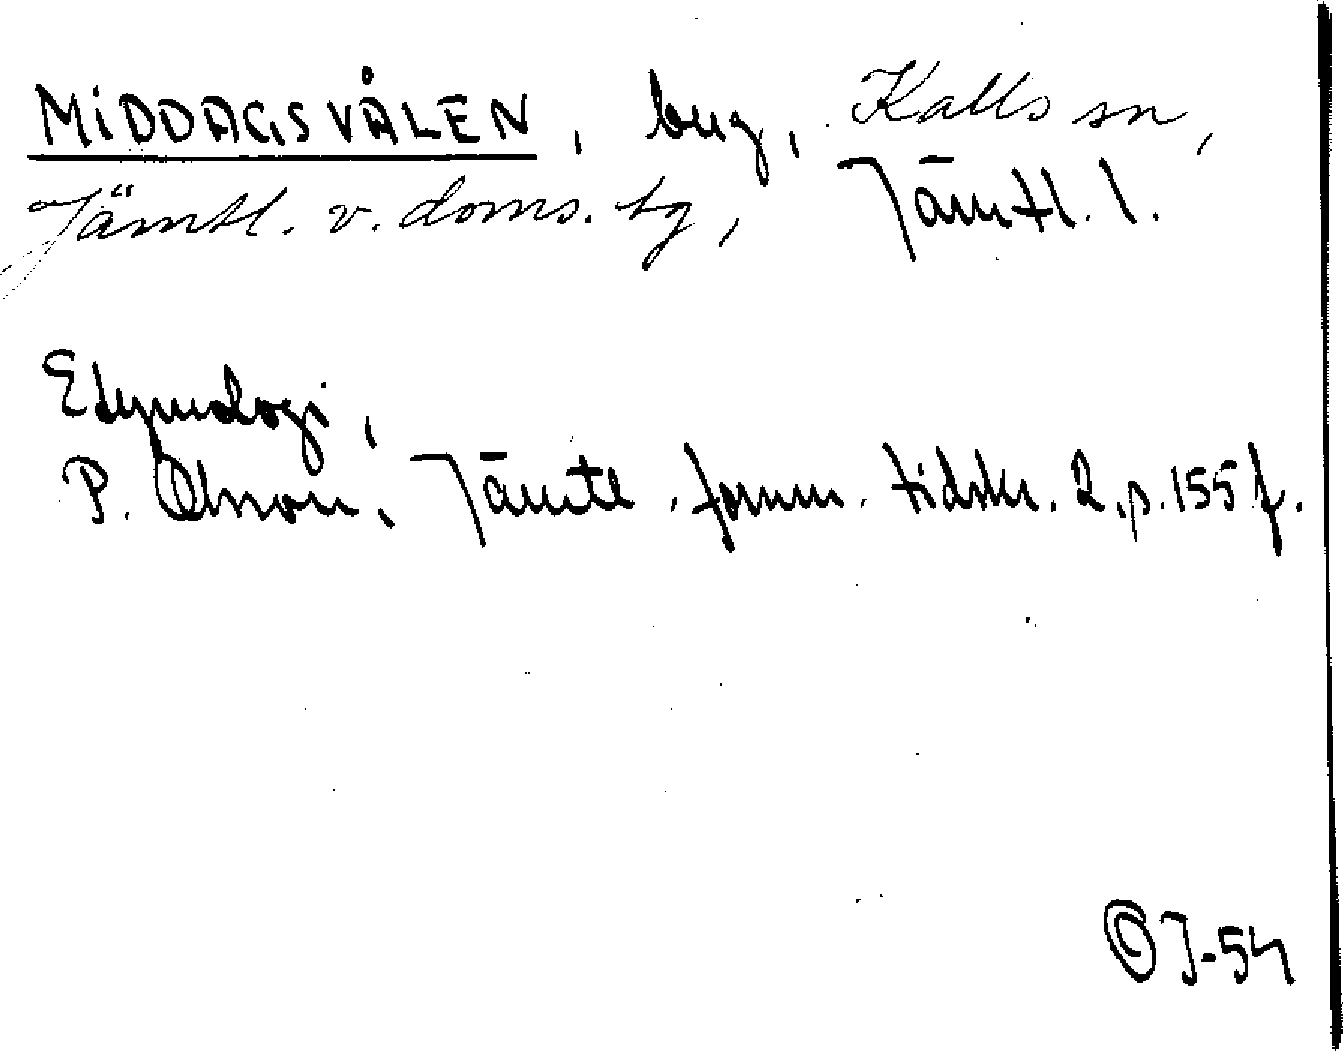 MIDDAGSVÅLEN, berg, Kalls sn,
Jämtl. v. doms. tg, Jämtl. l.
Etymologi,
P. Olsson, Jämtl. fornm. tidskr. 2, p. 155 f.
J-54